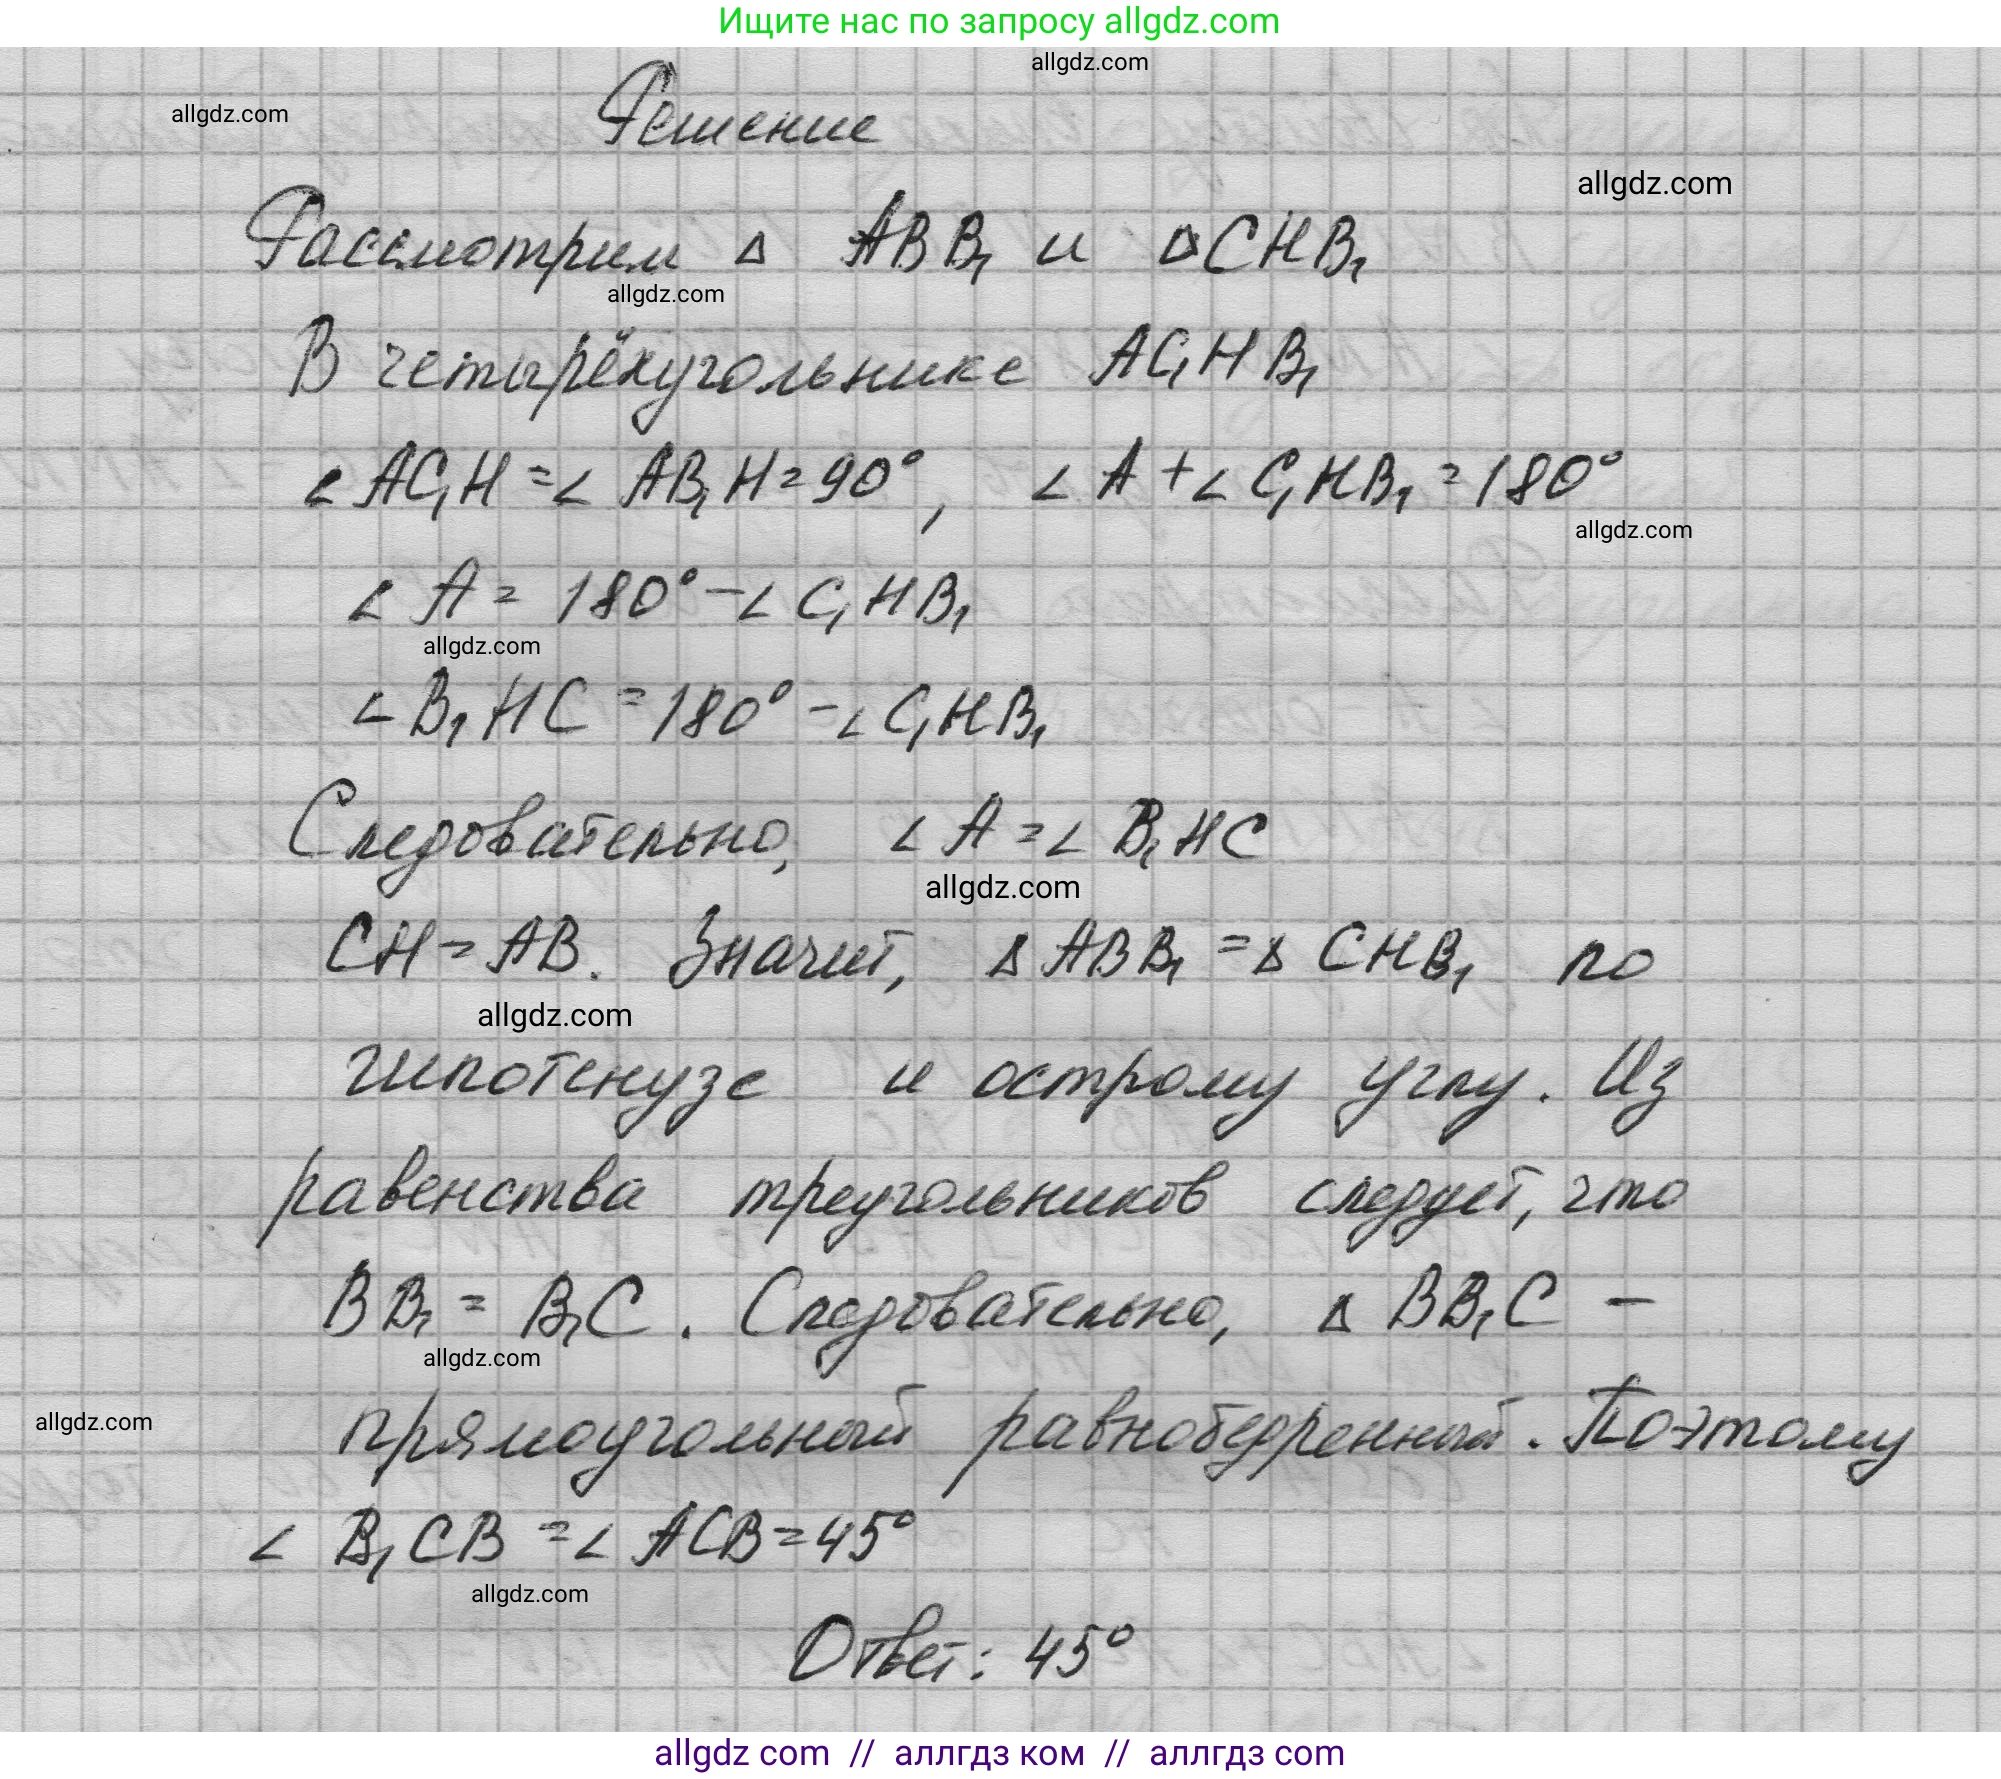 Ищите нас по запросу allgdz.com
allgdz.com
allgdz.com
Решение
allgdz.com
Рассмотрим Δ ABB₁ и ΔCHB₁
allgdz.com
В четырёхугольнике AC₁HB₁
∠AC₁H=∠AB₁H=90°, ∠A+∠C₁HB₁=180°
allgdz.com
∠A=180°-∠C₁HB₁
allgdz.com
∠B₁HC=180°-∠C₁HB₁
Следовательно, ∠A=∠B₁HC
allgdz.com
CH=AB. Значит, ΔABB₁=ΔCHB₁ по
allgdz.com
гипотенузе и острому углу. Из
равенства треугольников следует, что
BB₁=B₁C. Следовательно, ΔBB₁C –
allgdz.com
allgdz.com
прямоугольный равнобедренный. Поэтому
∠B₁CB=∠ACB=45°
allgdz.com
Ответ: 45°
allgdz com // аллгдз ком // аллгдз com